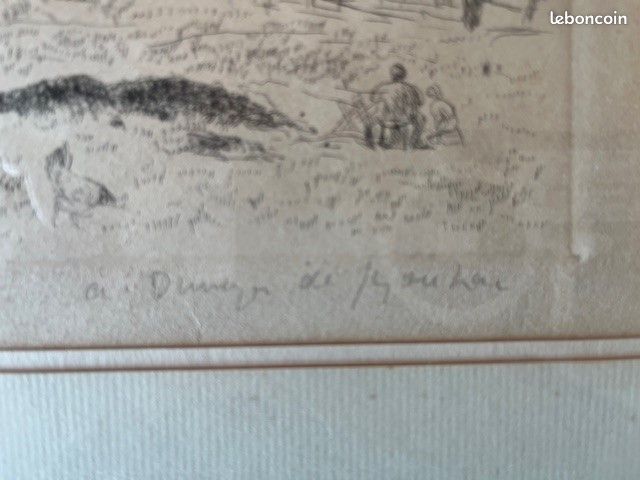 leboncoin
a. Dunoyer de Segonzac